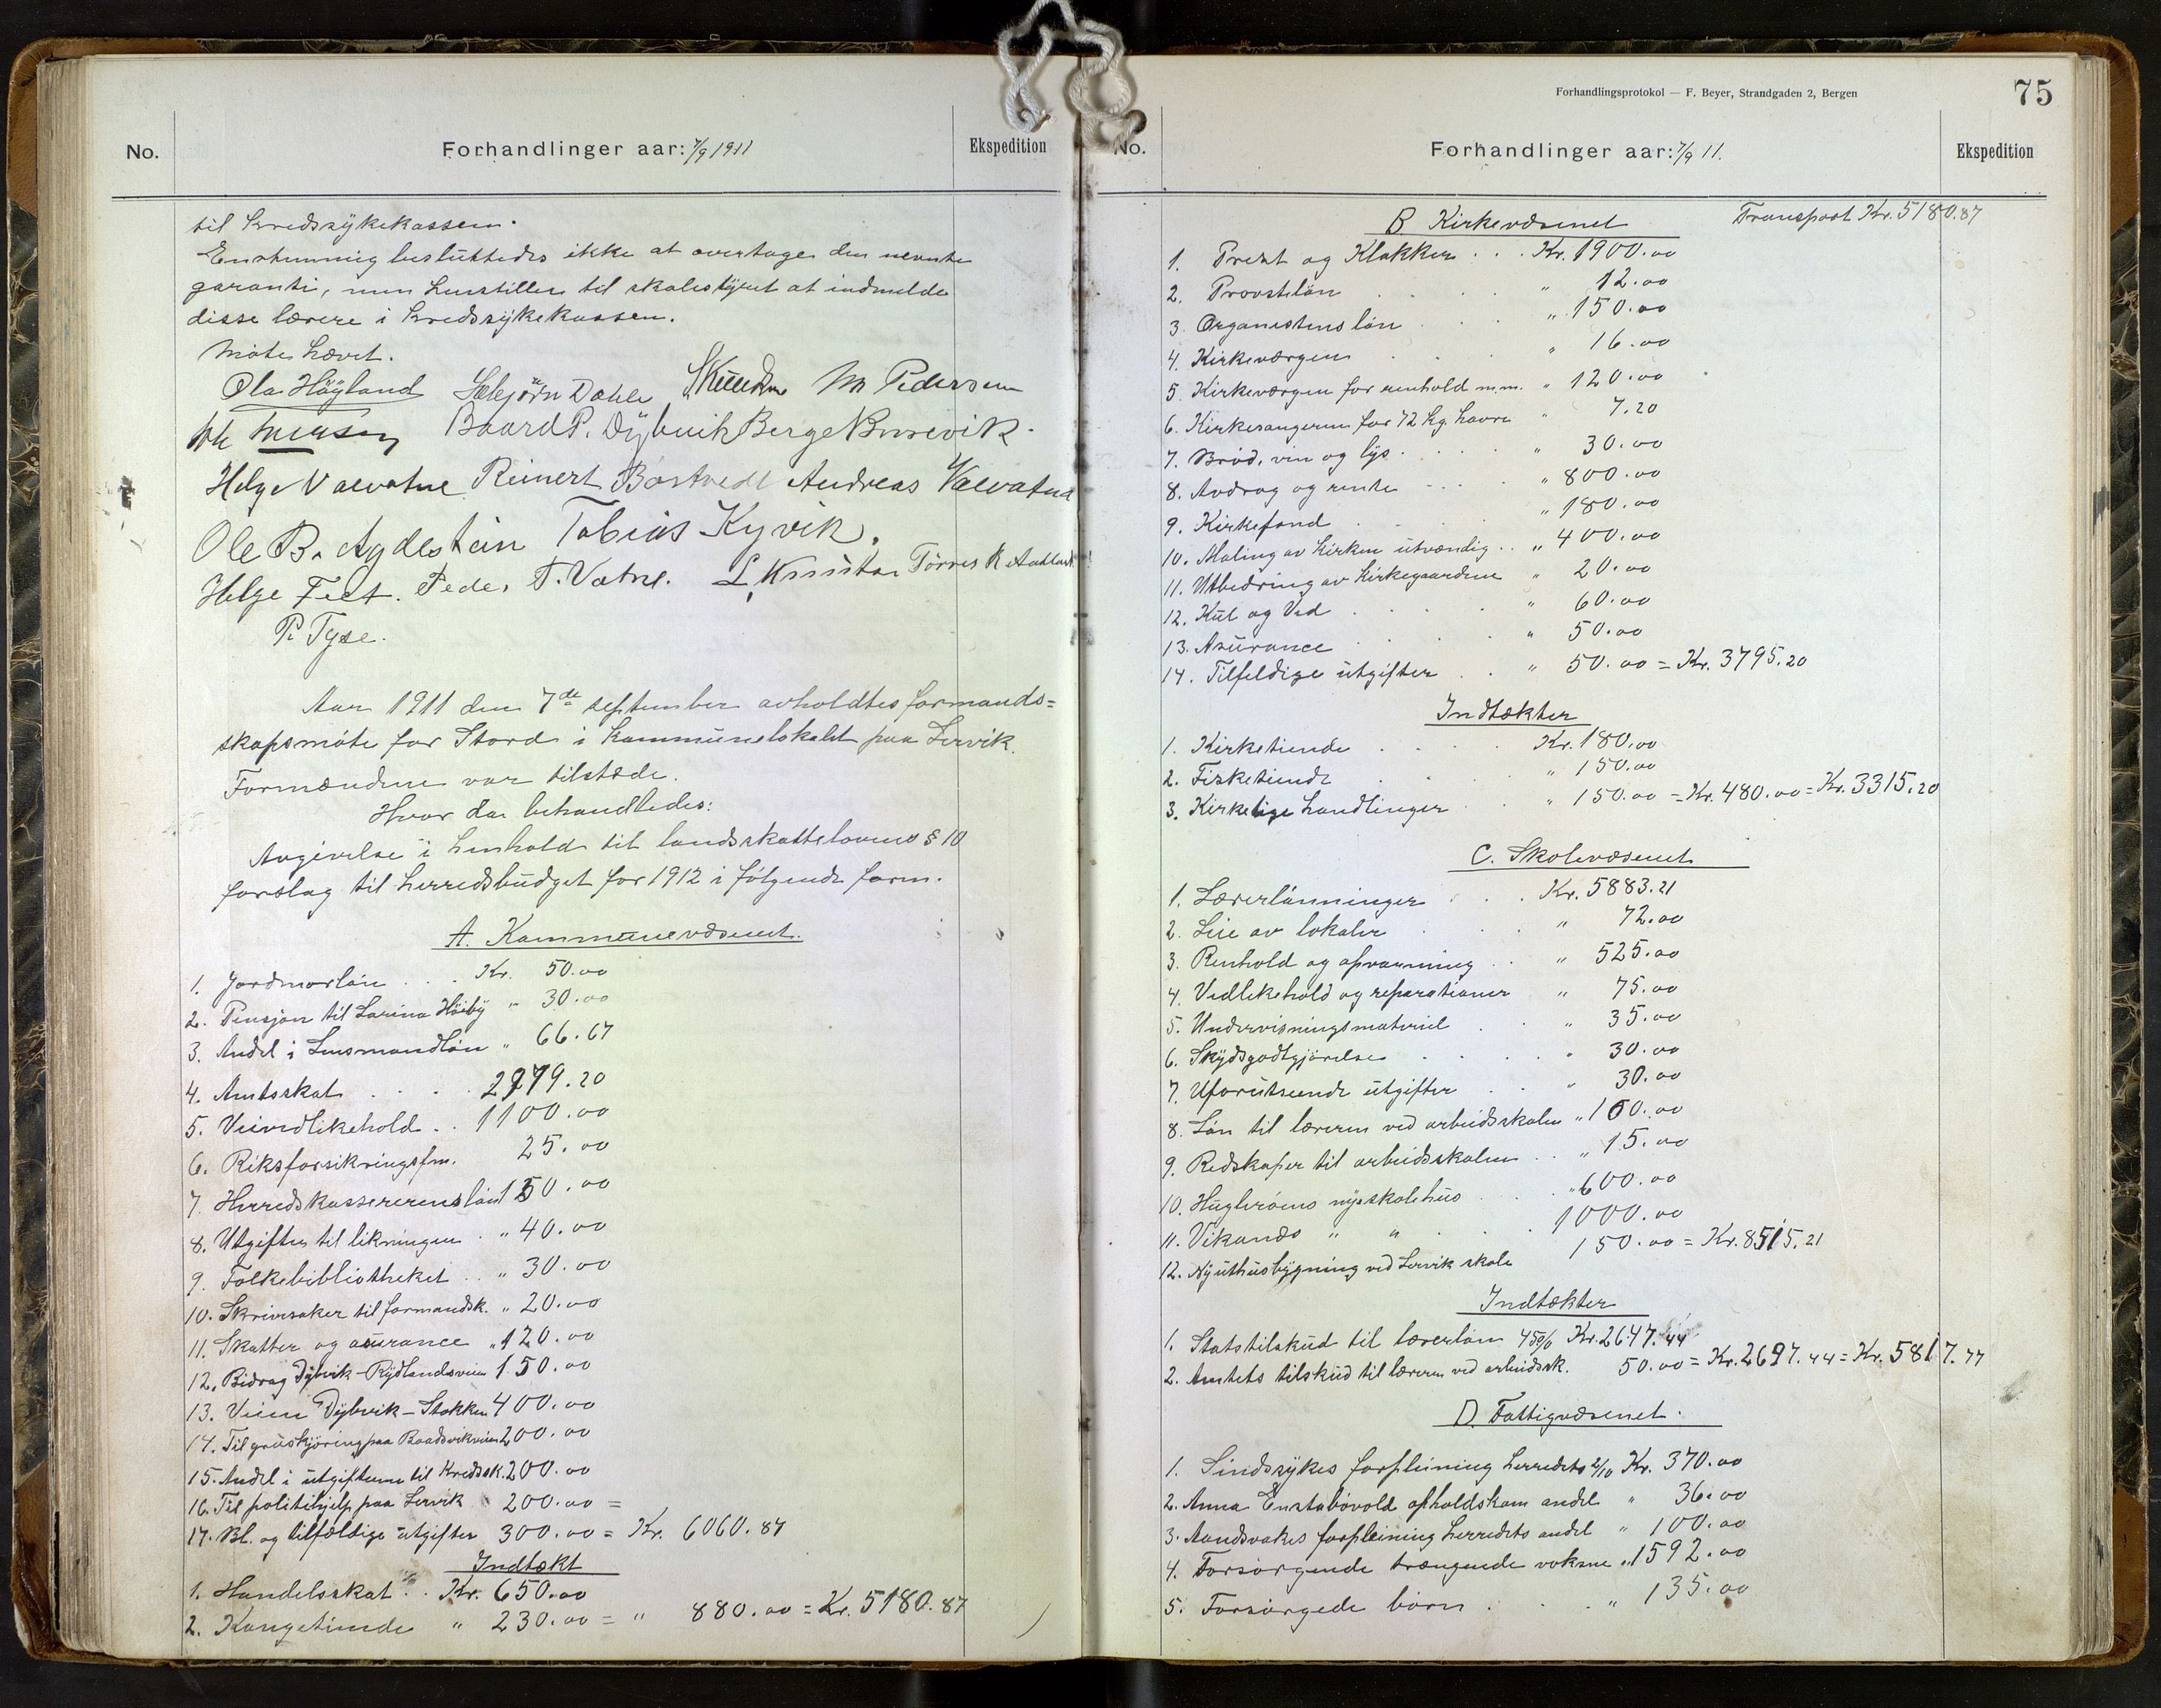 No.
Forhandlinger aar: 7/9 1911
Ekspedition
til kredssykekassen.
Enstemmig besluttedes ikke at overtage den nevnte
garanti, men henstiller til skolestyret at indmelde
disse lærere i kredssykekassen.
Møte hævet.
Ola Höyland Sæbjörn Dahle M Pedersen
Baard P. Dybvik Berge Bursvik.
Helge Valvatne Reinert Børtvedt Andreas Valvatne
Ole B. Agdestein Tobias Kyvik.
Helge Feet. Peder T. Vatne. L. Knutsen Tørres R.
P. Tyse.
Aar 1911 den 7de september avholdtes formands=
skapsmøte for Stord i kommunelokalet paa Lervik.
Formændene var tilstæde.
Hvor da behandledes:
Avgivelse i henhold til landsskattelovens § 10
forslag til herredsbudget for 1912 i følgende form.
A. Kommunevæsenet.
1. Jordmorløn . . . Kr. 50.00
2. Pensjon til Larina Høiby " 30.00
3. Andel i Lensmandløn " 66.67
4. Amtsskat . . . . 2979.20
5. Veivedlikehold . . 1100.00
6. Riksforsikringsfm. 25.00
7. Herredskassererens løn 150.00
8. Utgifter til likningen . " 40.00
9. Folkebibliotheket . . " 30.00
10. Skrivesaker til formandsk. " 20.00
11. Skatter og asurance " 120.00
12. Bidrag Dybvik-Rydlandsveien 150.00
13. Veien Dybvik - Stokken 400.00
14. Til gruskjøring paa Baadsvikveien 200.00
15. Andel i utgifterne til Kredssk. 200.00
16. Til politihjelp paa Lervik 200.00 =
17. Bl. og tilfældige utgifter 300.00 = Kr. 6060.87
Indtækt
1. Handelsskat . . Kr. 650.00
2. Kongetiende " 230.00 = " 880.00 = Kr. 5180.87
Forhandlingsprotokol — F. Beyer, Strandgaden 2, Bergen
75
No.
Forhandlinger aar: 7/9 11.
Ekspedition
B. Kirkevæsenet Transport Kr. 5180.87
1. Prest og Klokker . . . Kr. 1900.00
2. Provsteløn . . . . " 12.00
3. Organistens løn . . . " 150.00
4. Kirkeværgen . . . " 16.00
5. Kirkeværgen for renhold m.m. " 120.00
6. Kirkesangeren for 72 kg. havre " 7.20
7. Brød, vin og lys . . . . " 30.00
8. Avdrag og rente . . . " 800.00
9. Kirkefond . . . . " 180.00
10. Maling av kirken utvændig . . " 400.00
11. Utbedring av kirkegaardene " 20.00
12. Kul og Ved . . . . " 60.00
13. Asurance . . . . " 50.00
14. Tilfeldige utgifter . . " 50.00 = Kr. 3795.20
Indtækter
1. Kirketiende . . . . Kr. 180.00
2. Fisketiende . . . . " 150.00
3. Kirkelige handlinger . . " 150.00 = Kr. 480.00 = Kr. 3315.20
C. Skolevæsenet
1. Lærerlønninger . . . Kr. 5883.21
2. Leie av lokaler . . . " 72.00
3. Renhold og opvarming . . " 525.00
4. Vedlikehold og reparationer " 75.00
5. Undervisningsmateriel . . " 35.00
6. Skydsgodtgjørelse . . . . " 30.00
7. Uforutseende utgifter . . " 30.00
8. Løn til læreren ved arbeidsskolen " 100.00
9. Redskaper til arbeidsskolen . . " 15.00
10. Huglerøens nye skolehus . . . " 600.00
11. Vikanes " " . . . 1000.00
12. Ny uthusbygning ved Lervik skole 150.00 = Kr. 8515.21
Indtækter
1. Statstilskud til lærerløn 45% Kr. 2647.44
2. Amtets tilskud til læreren ved arbeidssk. 50.00 = Kr. 2697.44 = Kr. 5817.77
D. Fattigvæsenet.
1. Sindssykes forpleining herredets 4/10 Kr. 370.00
2. Anna opholdskom andel " 36.00
3. Aandsvakes forpleining herredets andel " 100.00
4. Forsørgende trængende voksne " 1592.00
5. Forsørgede børn . . . . " 135.00